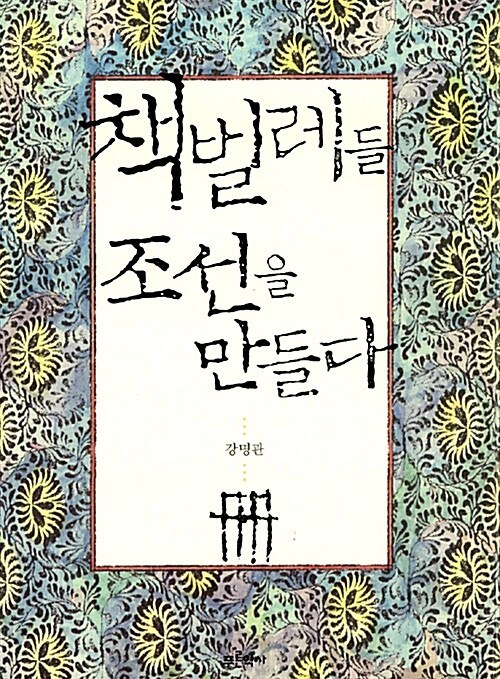 책벌레들
조선을
만들다
강명관
冊
푸른역사